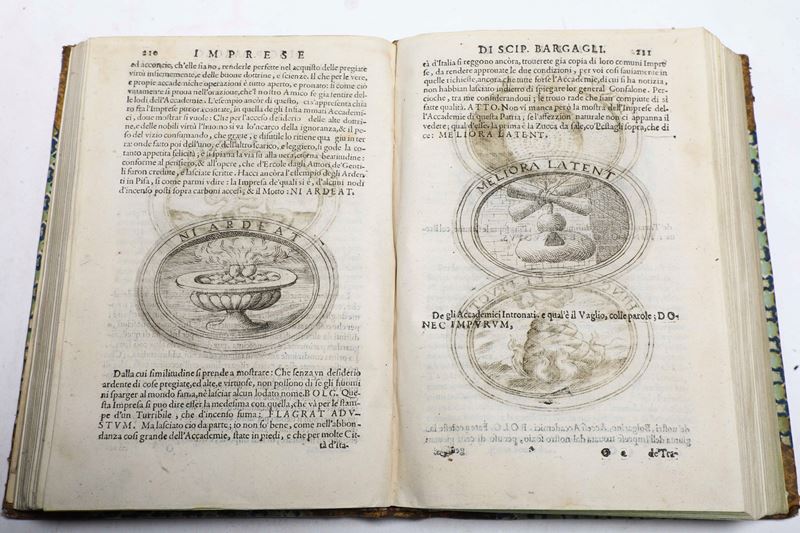 210 IMPRESE
ed acconcio, ch'elle siano, renderle perfette nel acquisto delle pregiate
virtù insiememente, e delle buone dottrine, e scienze. Il che per le vere,
e proprie accademiche operazioni è tutto aperto, e pronato: sì come ciò
vivamente si prova nell'orazione, che'l nostro Amico fè già sentire del-
le lodi dell'Accademie. L'esempio ancòr di questo, cia'appresenta chia
ro frà l'Imprese pur racontate, in quella degli Infiammati Accademi-
ci, dove mostrar si vuole: Che per acceso desiderio delle alte dottri-
ne, e delle nobili virtù l'huomo si va lo'ncarco della ignoranza, & il pe-
so del vizio consumando, che grave, e disutile lo ritiene qua giù in ter
ra: onde fatto poi dell'uno, e dell'altro scarico, e leggiero, si gode la co-
tanto appetita felicità, e si spiana la via sù alla vera, eterna beatitudine:
conforme al pensiero, & all'opere, che d'Ercole dagli Autori de' Genti-
li furon credute, e lasciate scritte. Hacci ancòra l'essempio degli Arden
ti in Pisa, sì come parmi vdire: la Impresa de' quali si è, d'alcuni nodi
d'incenso posti sopra carboni accesi; & il Motto: NI ARDEAT.
NI ARDEAT
Dalla cui similitudine si prende a mostrare: Che senza vn desiderio
ardente di cose pregiate, ed alte, e virtuose, non possono di se gli huomi
ni sparger al mondo fama, nè lasciar alcun lodato nome. BOLG. Que-
sta Impresa si può dire esser la medesima con quella, che và per le stam-
pe d'un Turribile, che d'incenso fuma: FLAGRAT ADV-
STVM. Ma lasciato ciò da parte; io non so bene, come nell'abbon-
danza così grande dell'Accademie, state in piedi, e che per molte Cit-
tà d'Ita-
DI SCIP. BARGAGLI. 211
tà d'Italia si reggono ancòra, trouerete già copia di loro comuni Impre
se, da rendere appronate le due condizioni, per voi così sauiamente in
quelle richieste, ancora che tutte forse l'Accademie, di cui si ha notitia,
non habbian lasciato indietro di spiegar lor general Gonfalone. Per-
cioche, tra me considerandoui; le truouo rade che sian compiute di sì
fatte qualità. ATTO. Non vi manca però la mostra dell'Imprese del-
l'Accademie di questa Patria; se l'affezzion naturale non ci appanna il
vedere; qual'dess'è, la prima è la Zucca da sale, co' Pestagli sopra, che di
ce: MELIORA LATENT.
MELIORA LATENT
De gli Accademici Intronati. e qual'è il Vaglio, colle parole; DO-
NEC IMPVRVM,
de Tra-